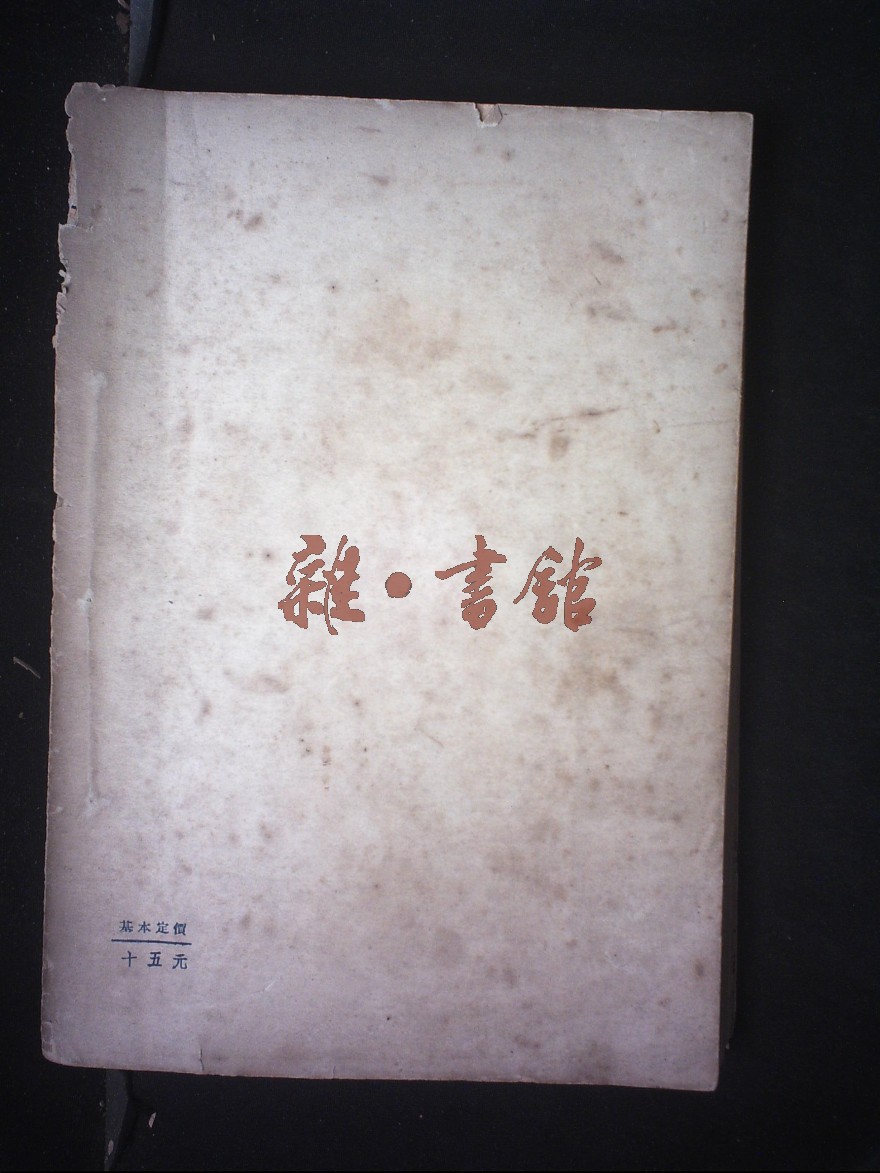 雜·書館
基本定價
十五元